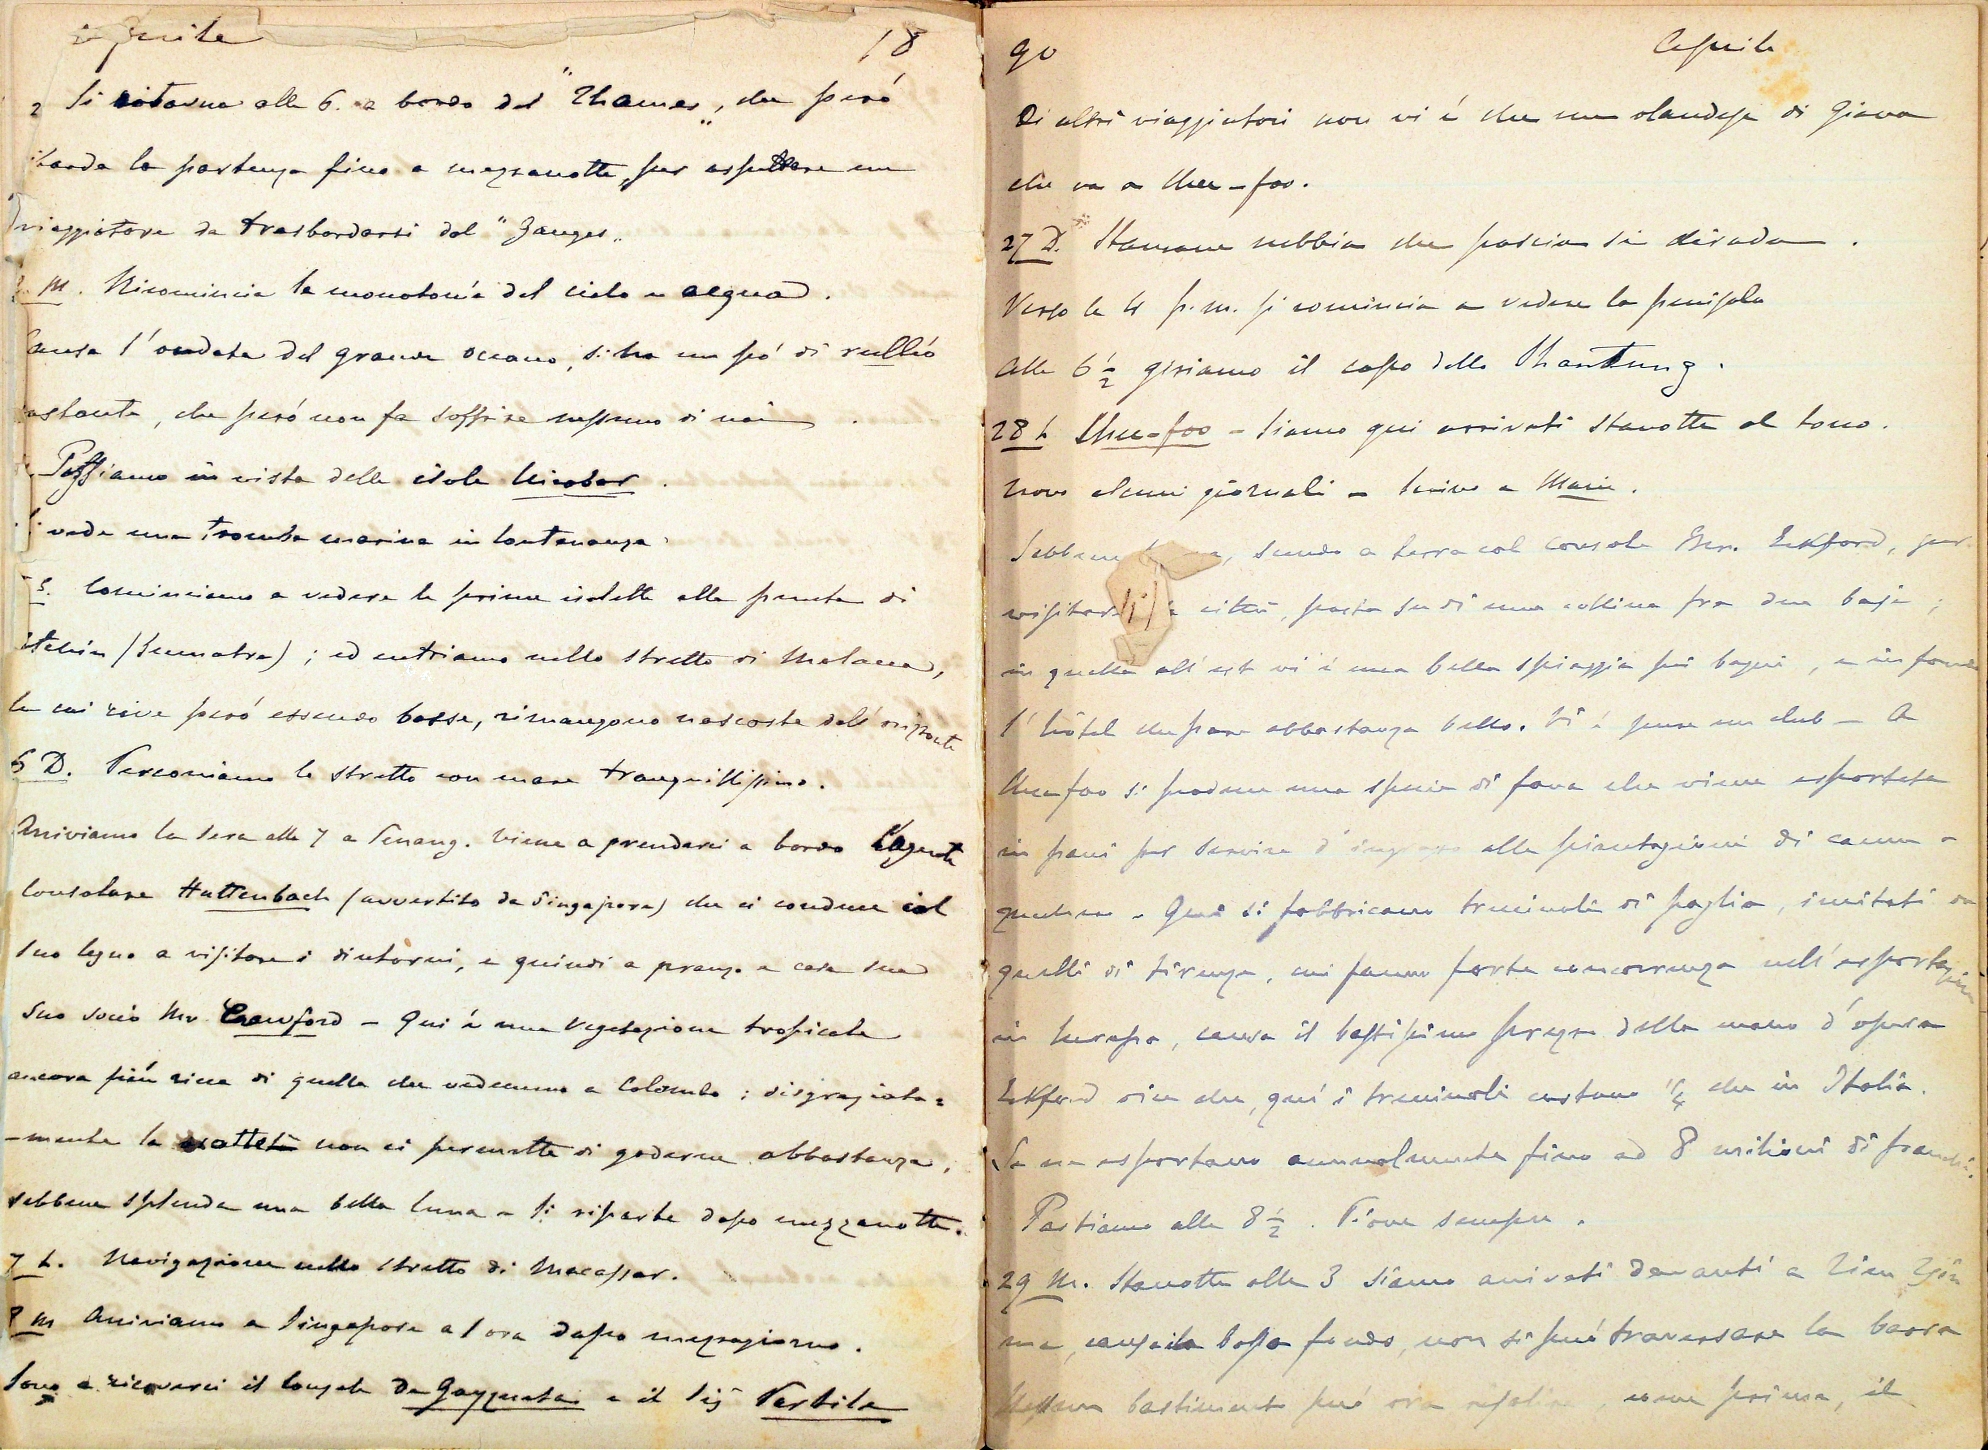 Aprile 18
Si ritorna alle 6. a bordo del "Thames„, che peró
ritarda la partenza fino a mezzanotte, per aspettare un
viaggiatore da trasbordarsi dal "Ganges„
M. Ricomincia la monotonia del cielo e acqua.
Causa l'ondata del grande oceano, si ha un pó di rullío
costante, che peró non fa soffrire nessuno di noi.
Passiamo in vista delle isole Nicobar.
Si vede una tromba marina in lontananza.
S. Cominciamo a vedere le prime isolette alla punta di
Atchin (Sumatra); ed entriamo nello stretto di Malacca,
le cui rive peró essendo basse, rimangono nascoste dall'orizzonte
6 D. Percorriamo lo stretto con mare tranquillissimo.
Arriviamo la sera alle 7 a Penang. Viene a prenderci a bordo l'Agente
Consolare Huttenbach (avvertito da Singapore) che ci conduce col
suo legno a visitare i dintorni, e quindi a pranzo a casa sua
suo socio Mr Crawford – Qui é una vegetazione tropicale
ancora piú ricca di quella che vedemmo a Colombo; disgraziata=
–mente la notte non ci permette di goderne abbastanza,
sebbene splenda una bella luna – Si riparte dopo mezzanotte.
7 L. Navigazione nello stretto di Macassar.
8 M Arriviamo a Singapore a 1 ora dopo mezzogiorno.
Sono a riceverci il Console De Gozzueta e il Sig Pertile
90 Aprile
Di altri viaggiatori non vi é che un olandese di Giava
che va a Chee-foo.
27 D. Stamane nebbia che poscia si dirada.
Verso le 4 p.m. si comincia a vedere la penisola
Alle 6 1/2 giriamo il capo dello Shantung.
28 L Chee-foo – Siamo qui arrivati stanotte al tocco.
Trovo alcuni giornali – Scrivo a Marie.
Sebbene, scendo a terra col console Mr. Eckford, per
visitare la cittá, posta su di una collina fra due baje;
in quella all'est vi é una bella spiaggia pei bagni, e in fondo
l'hôtel che pare abbastanza bello. Vi é pure un club – A
Cheefoo si produce una specie di fava che viene esportata
in pani per servire d'ingrasso alle piantagioni di canna a
zucchero – Qui si fabbricano truccioli di paglia, imitati da
quelli di Firenze, cui fanno forte concorrenza nell'esportazione
in Europa, causa il bassissimo prezzo della mano d'opera
Eckford dice che, qui i truccioli costano 1/4 che in Italia.
Se ne esportano annualmente fino ad 8 milioni di franchi.
Partiamo alle 8 1/2. Piove sempre.
29 M. Stanotte alle 3 siamo arrivati davanti a Tien Tzin
ma, causa il basso fondo, non si puó traversare la barra
Nessun bastimento puó ora risalire, come prima, il